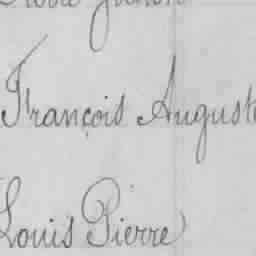 François Auguste
Louis Pierre